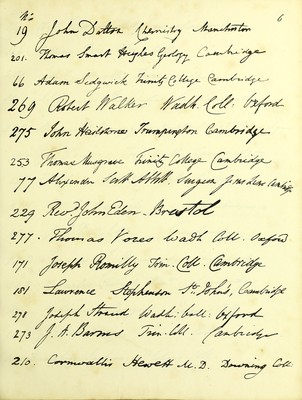 No. 6
19 John Dalton Chemistry Manchester
201. Thomas Smart Hughes Geology Cambridge
66 Adam Sedgwick Trinity College Cambridge
269 Robert Walker Wadh. Coll. Oxford
275 John Hailstone Trumpington Cambridge
253 Thomas Musgrave Trinity College Cambridge
77 Alexander Scott Surgeon
229 Revd. John Eden. Bristol
277. Thomas Vores Wadh Coll. Oxford
171 Joseph Romilly Trin. Coll. Cambridge
181 Lawrence Stephenson St. John's, Cambridge
278 Joseph Wadh: Coll: Oxford
273 J. A. Barnes Trin. Coll. Cambridge
210. Cornwallis Hewett M.D. Downing Coll.